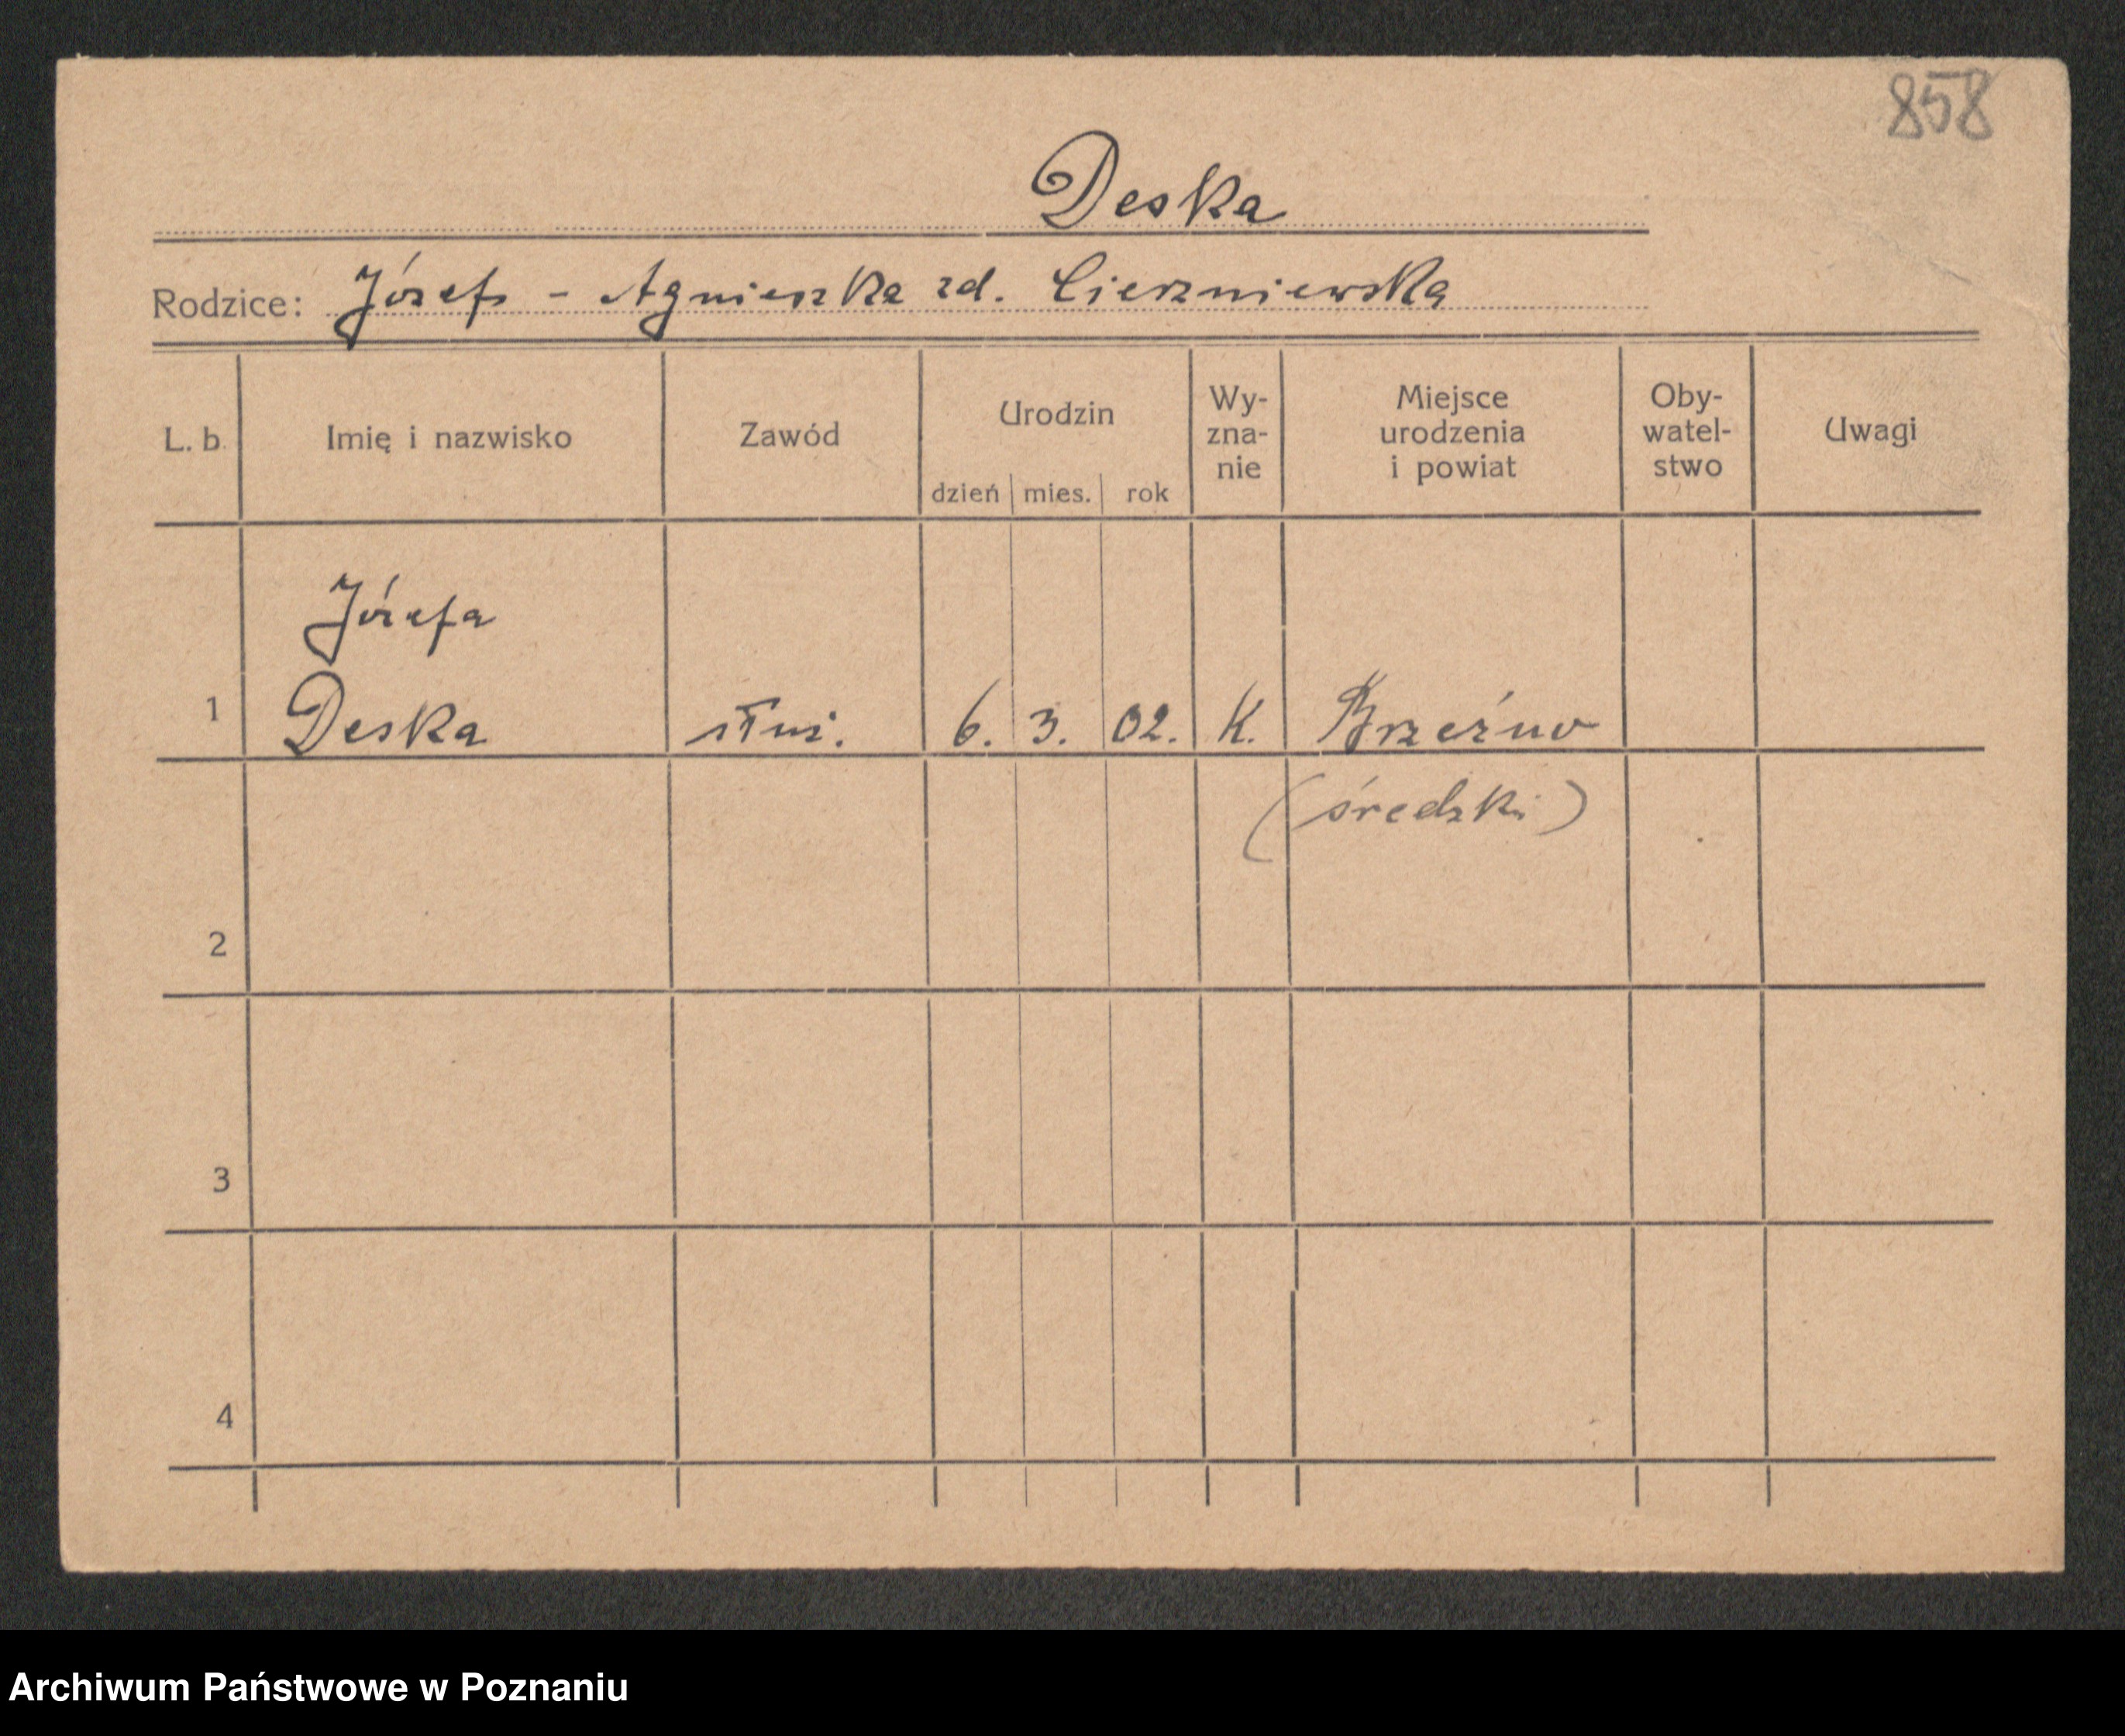 858
Deska
Rodzice: Józef - Agnieszka zd. Cierzniewska
L. b. Imię i nazwisko Zawód Urodzin dzień mies. rok Wy-zna-nie Miejsce urodzenia i powiat Oby-watel-stwo Uwagi
Józefa
1 Deska służ. 6. 3. 02. K. Brzeźno
(średzki)
2
3
4
Archiwum Państwowe w Poznaniu